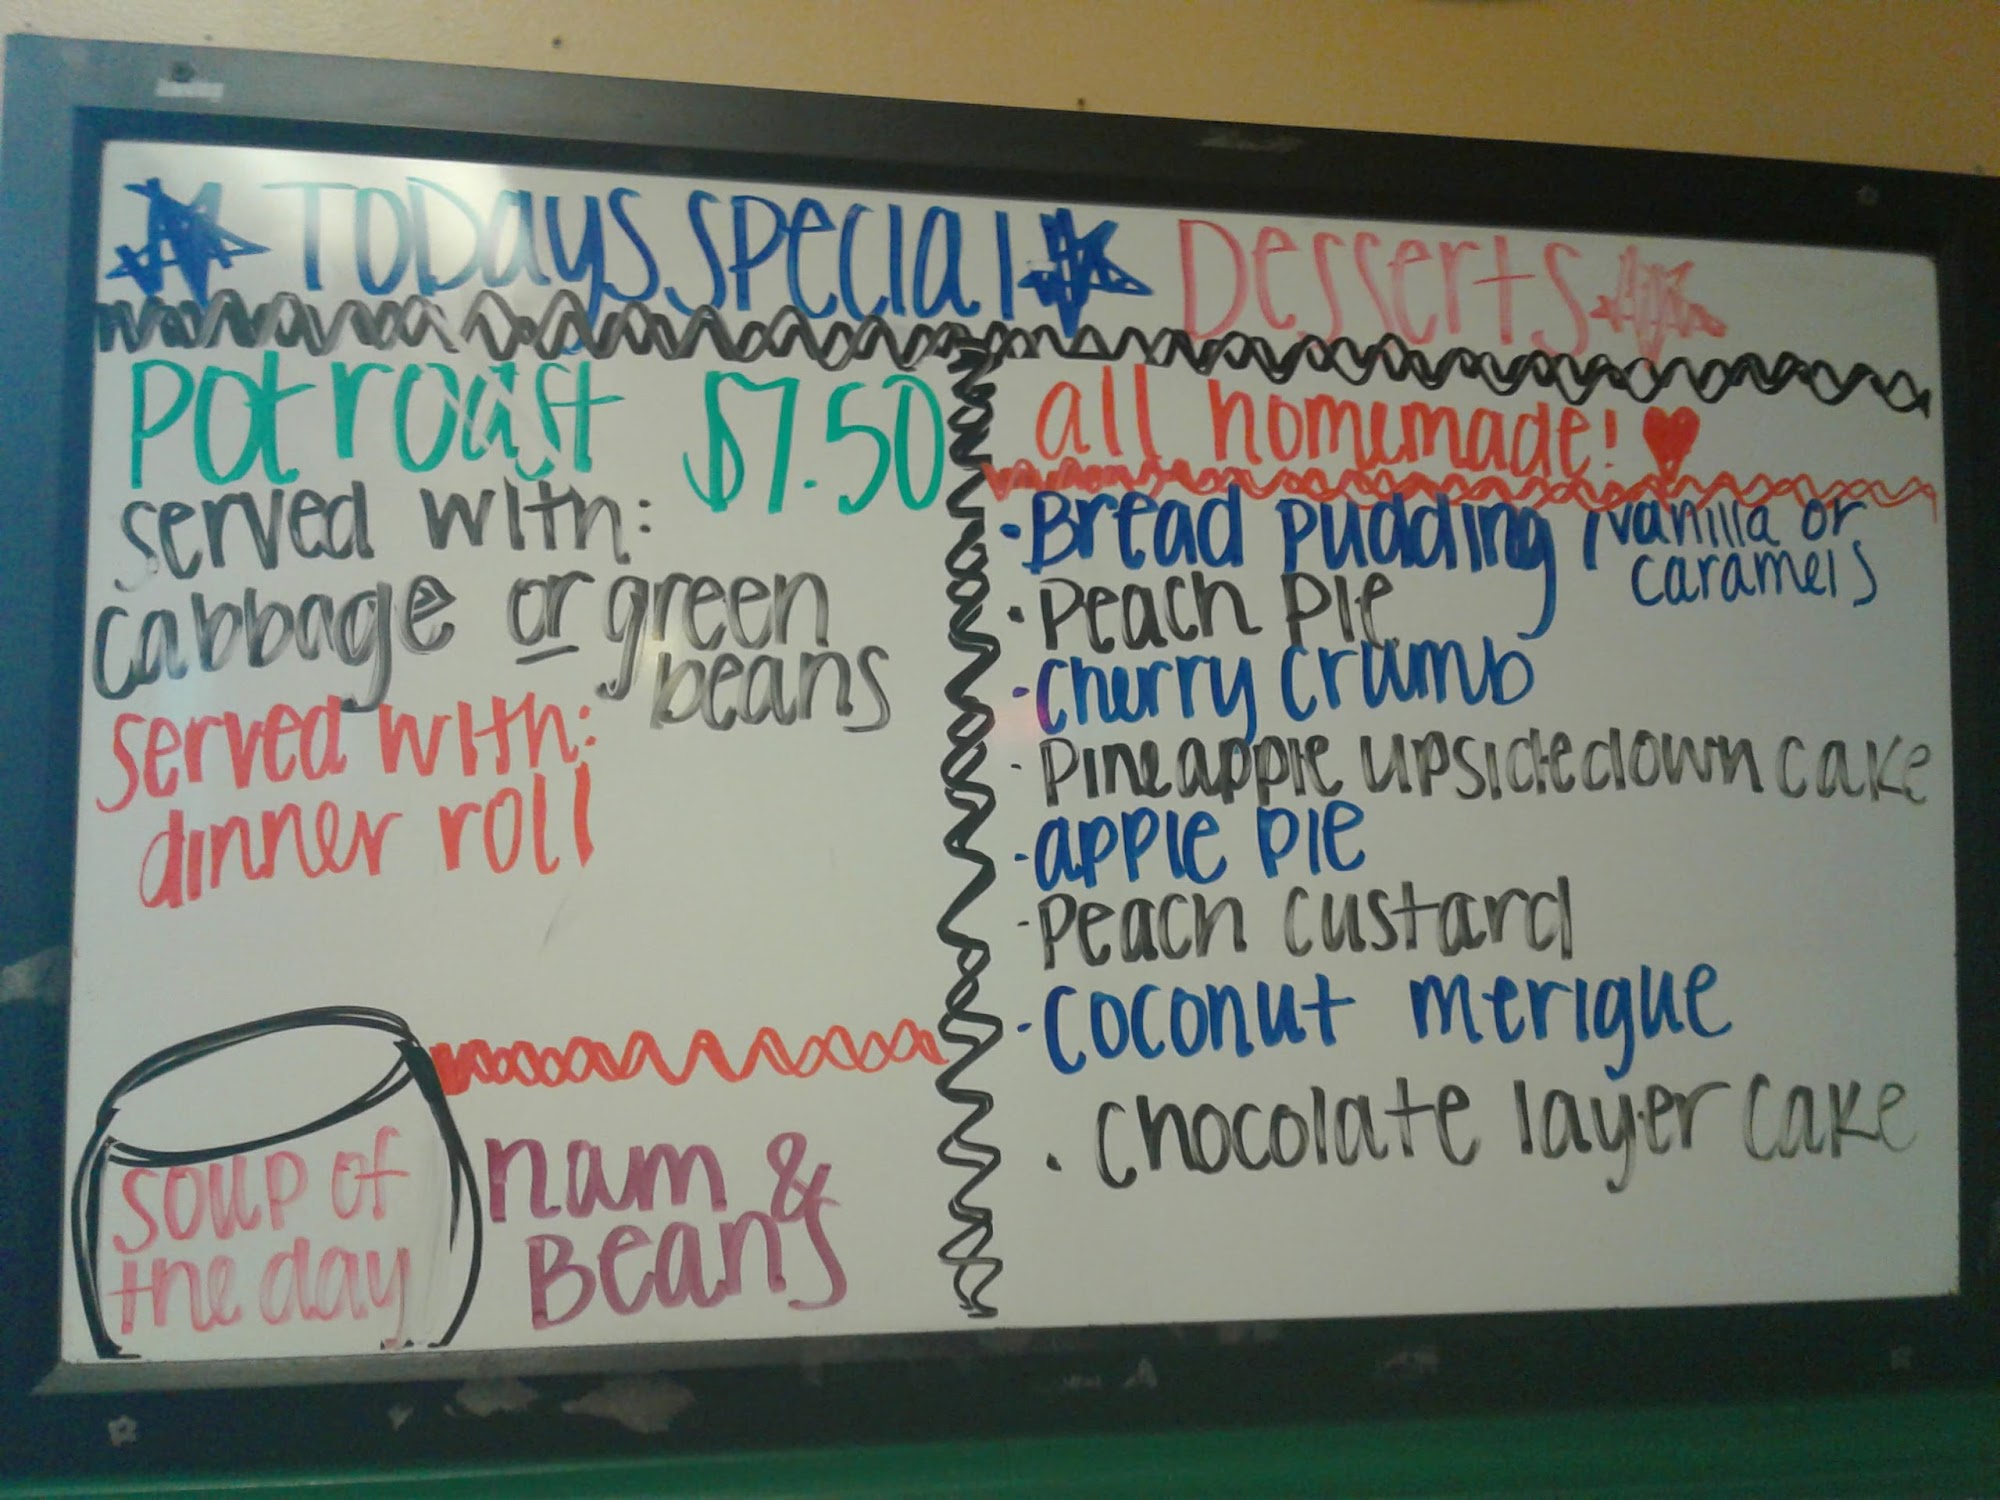 Todays Special
Pot roast $7.50
served with:
cabbage or green
beans
served with:
dinner roll
soup of
the day
ham &
Beans
Desserts
all homemade!
• Bread pudding / vanilla or
caramels
• Peach pie
• cherry crumb
• Pineapple upsidedown cake
• apple pie
• Peach custard
• coconut merigue
• chocolate layer cake